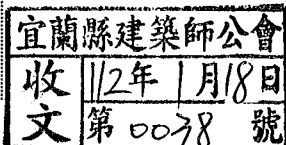 宜蘭縣建築師公會
收文
112年1月18日
第0038號